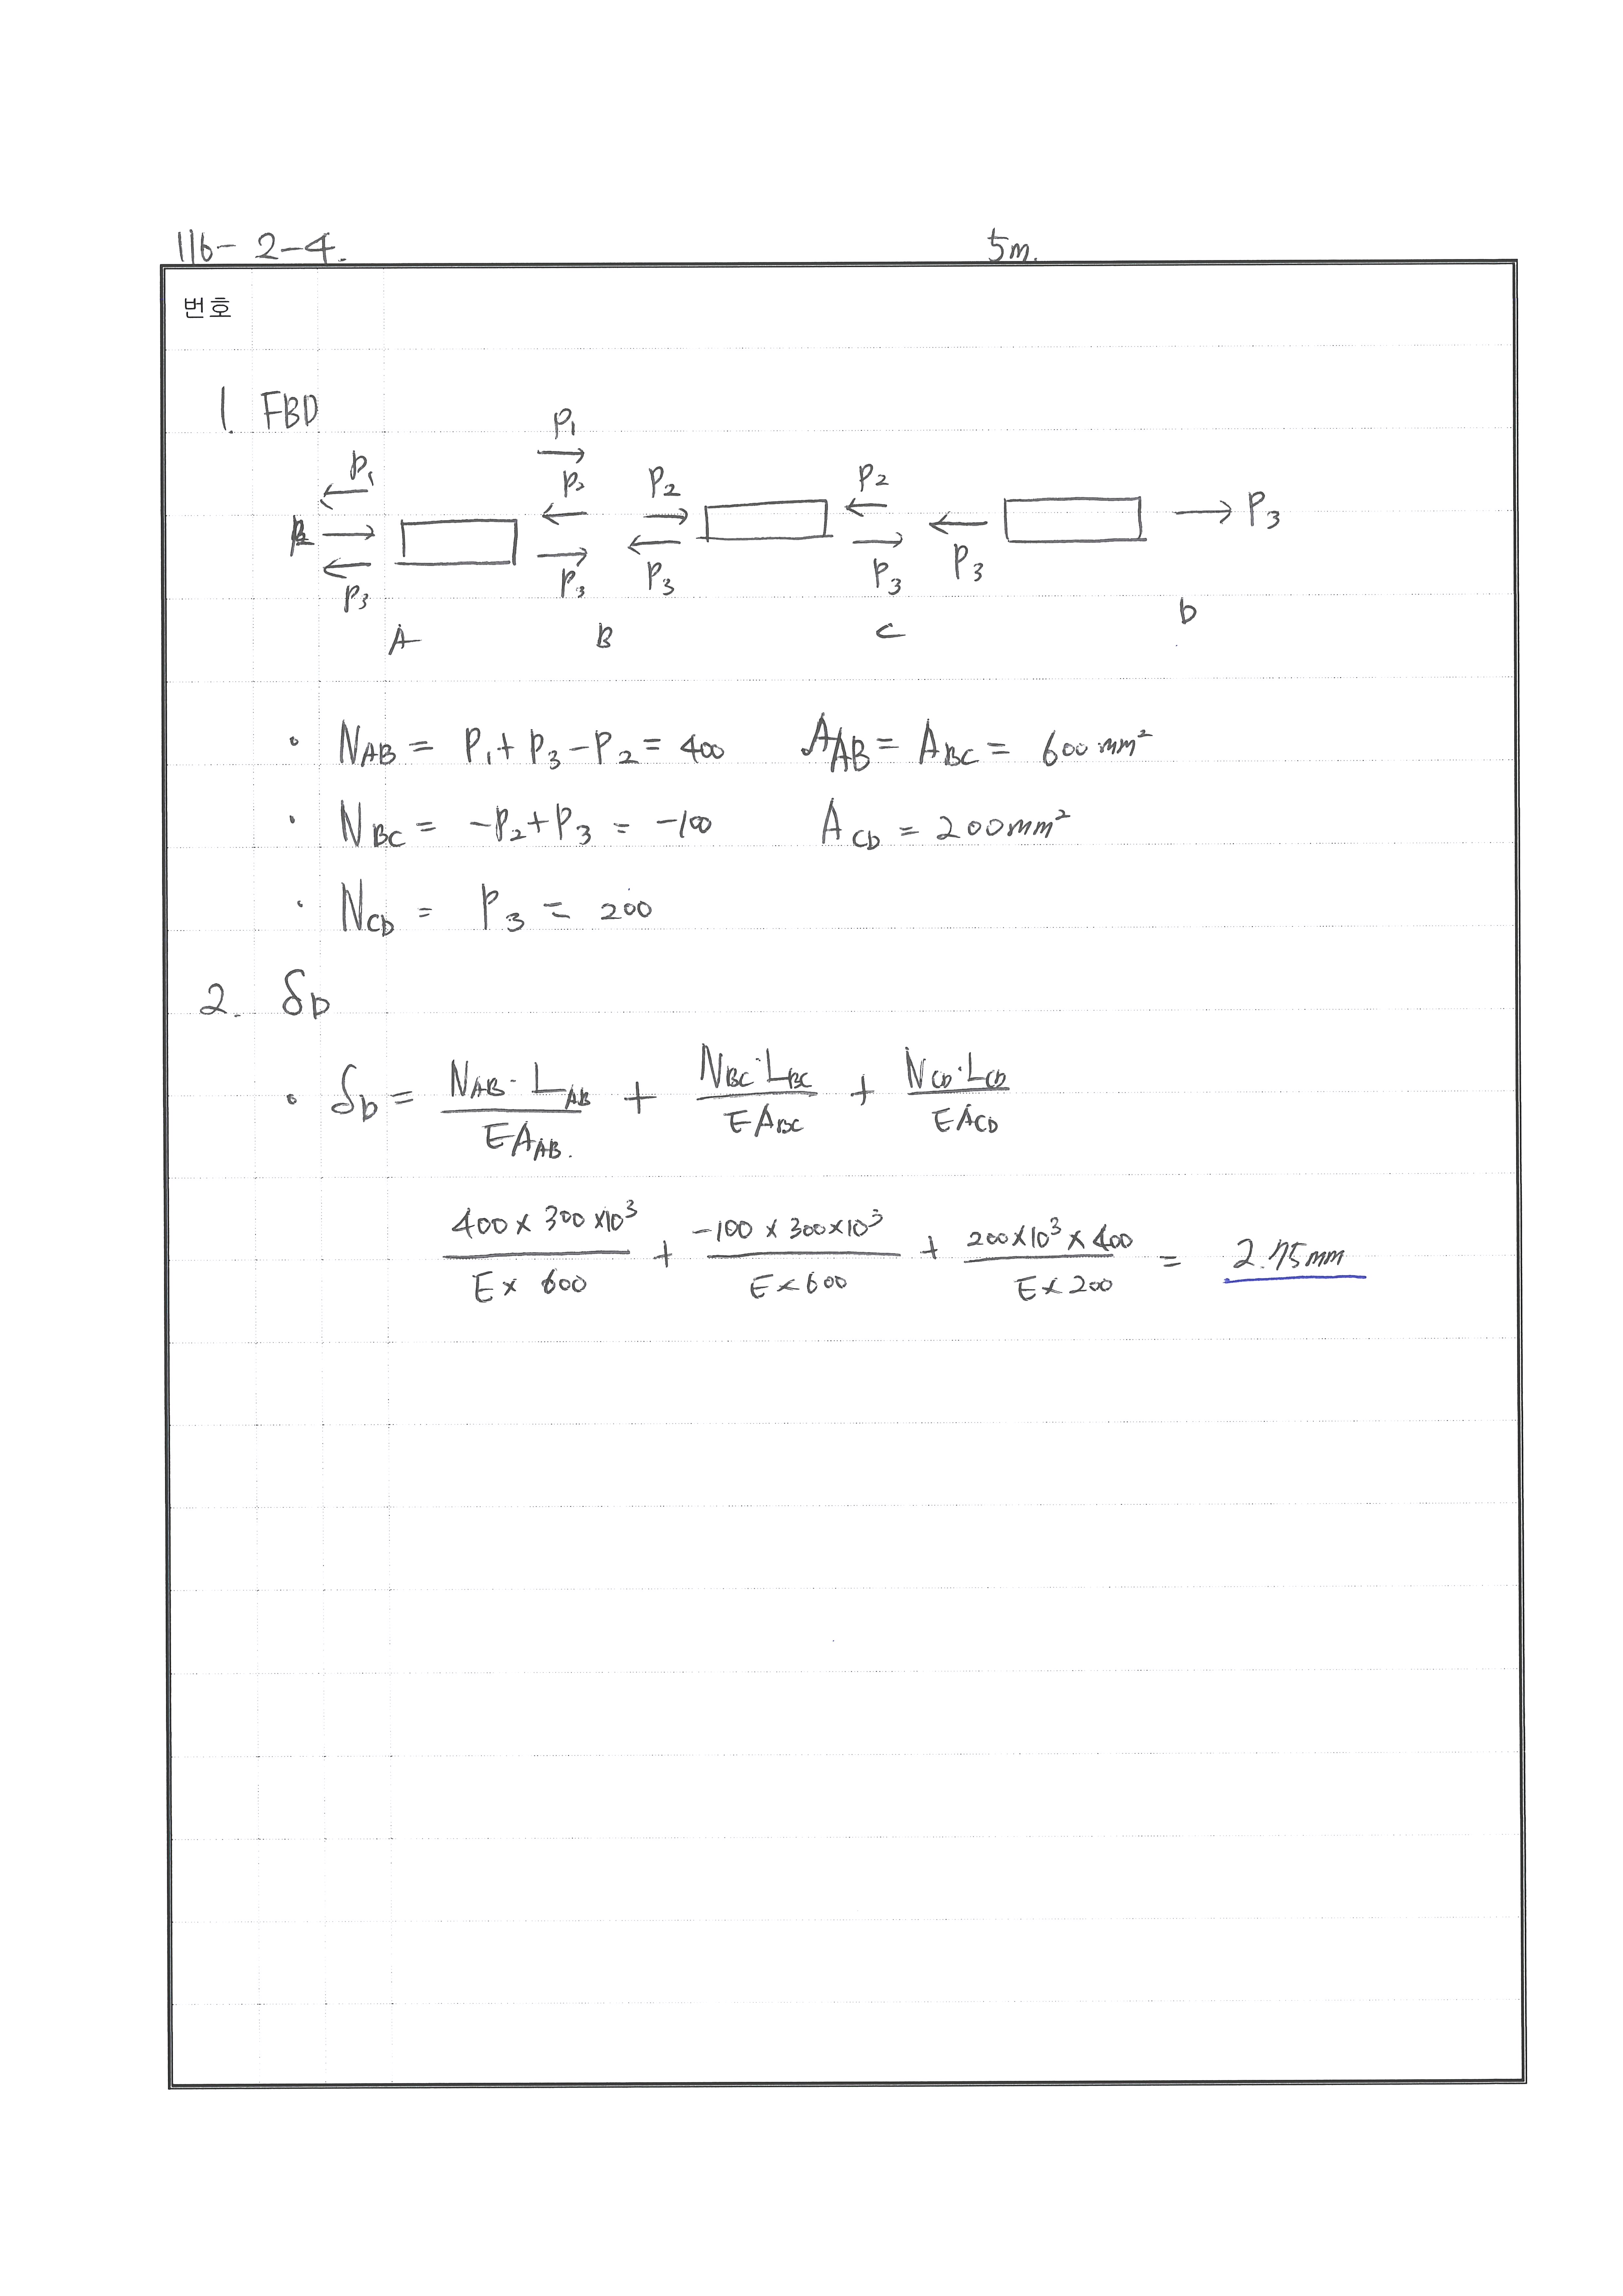 116-2-4. 5m.
번호
1. FBD
P₁
P₁
P₂ P₂ P₂
P₂ P₃
P₃ P₃ P₃ P₃ P₃
A B C D
· N_AB = P₁ + P₃ - P₂ = 400 A_AB = A_BC = 600 mm²
· N_BC = -P₂ + P₃ = -100 A_CD = 200mm²
· N_CD = P₃ = 200
2. δ_D
· δ_D = N_AB · L_AB / EA_AB. + N_BC · L_BC / EA_BC + N_CD · L_CD / EA_CD
400 × 300 × 10³ / E × 600 + -100 × 300 × 10³ / E × 600 + 200 × 10³ × 400 / E × 200 = 2.75mm